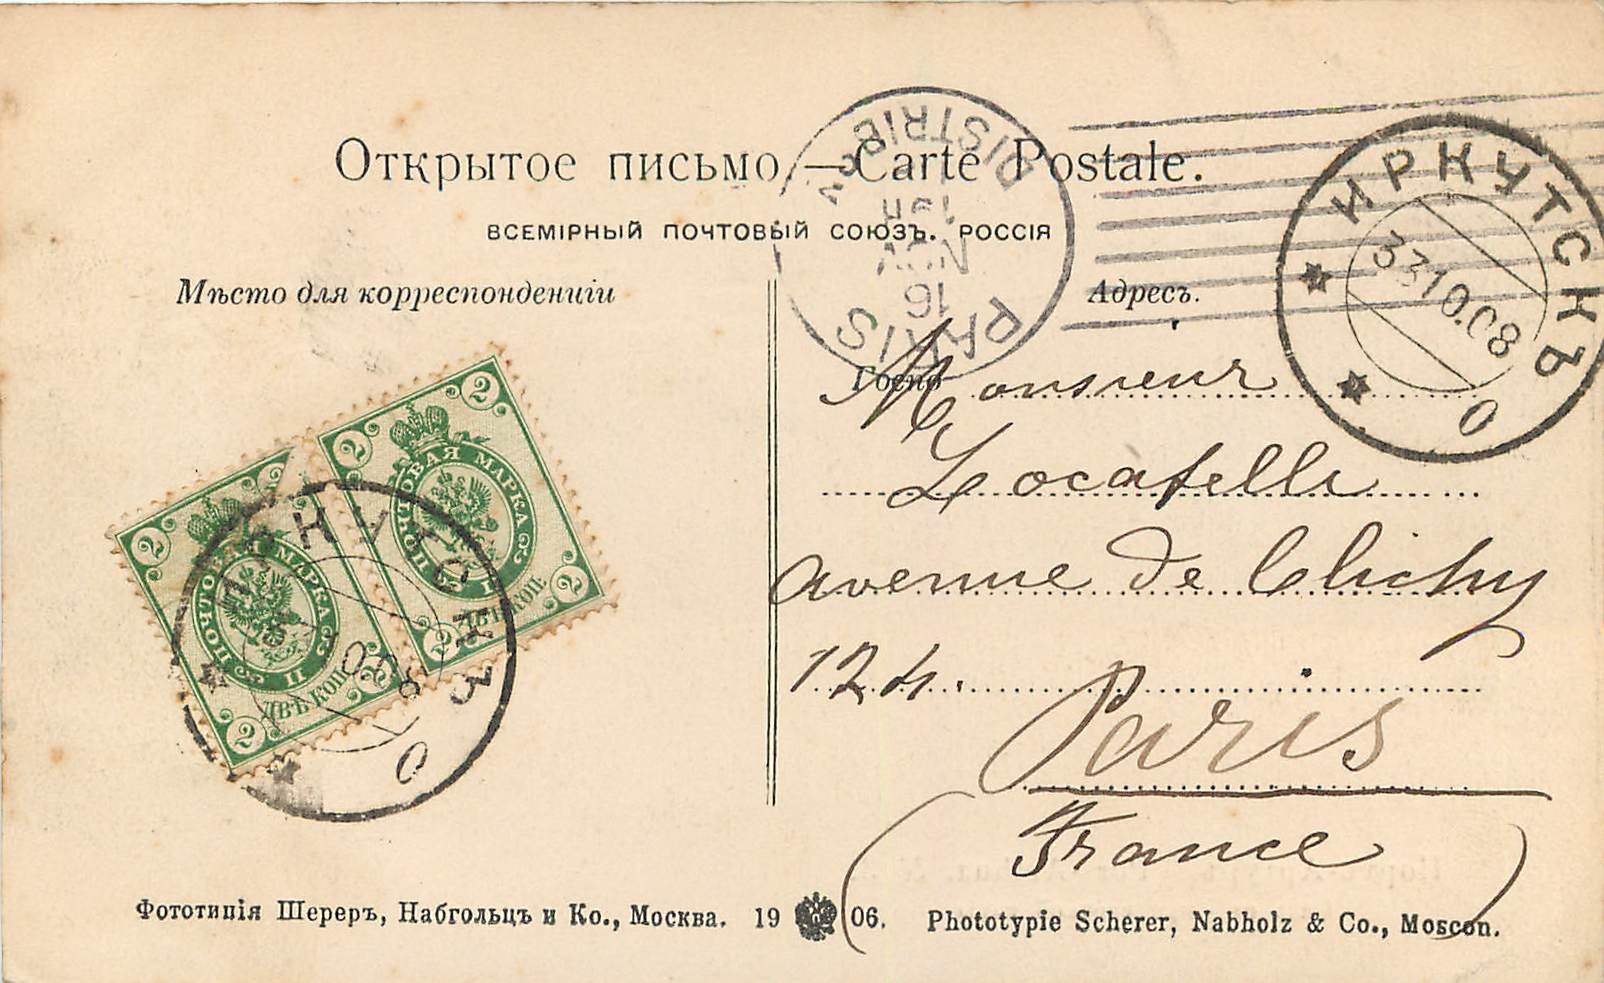 Открытое письмо — Carte Postale.
ВСЕМІРНЫЙ ПОЧТОВЫЙ СОЮЗЪ. РОССІЯ
Мѣсто для корреспонденціи
Адресъ.
PARIS DISTRIB
16
NOV
ИРКУТСКЪ
10.08
О
Госпо
Monsieur
Locatelli
avenue de Clichy
124.
Paris
France
2 2 2 ПОЧТОВАЯ МАРКА ДВѢ КОП.
2 2 2 ПОЧТОВАЯ МАРКА ДВѢ КОП. 2
ИРКУТСКЪ
О
Фототипія Шереръ, Набгольцъ и Ко., Москва. 19 06. Phototypie Scherer, Nabholz & Co., Moscou.